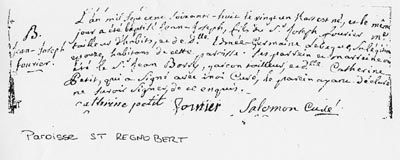 L'an mil sept cent soixante-huit le vingt un Mars est né, et le même
B. jour a été baptisé Jean Joseph, fils de Sr Joseph fourier m.
Jean-Joseph tailleur d'habits, et de dlle Germaine Lebegue, Ses père et
fourier. épouse, habitans de cette paroisse. Ses parrein et marreine ont
été le Sr Jean garçon tailleur, et dlle Catherine
Petit, qui a signé avec moi Curé, le parein ayant déclaré
ne savoir signer, de ce enquis.
catherine petit fourier Salomon Curé
Paroisse ST REGNOBERT